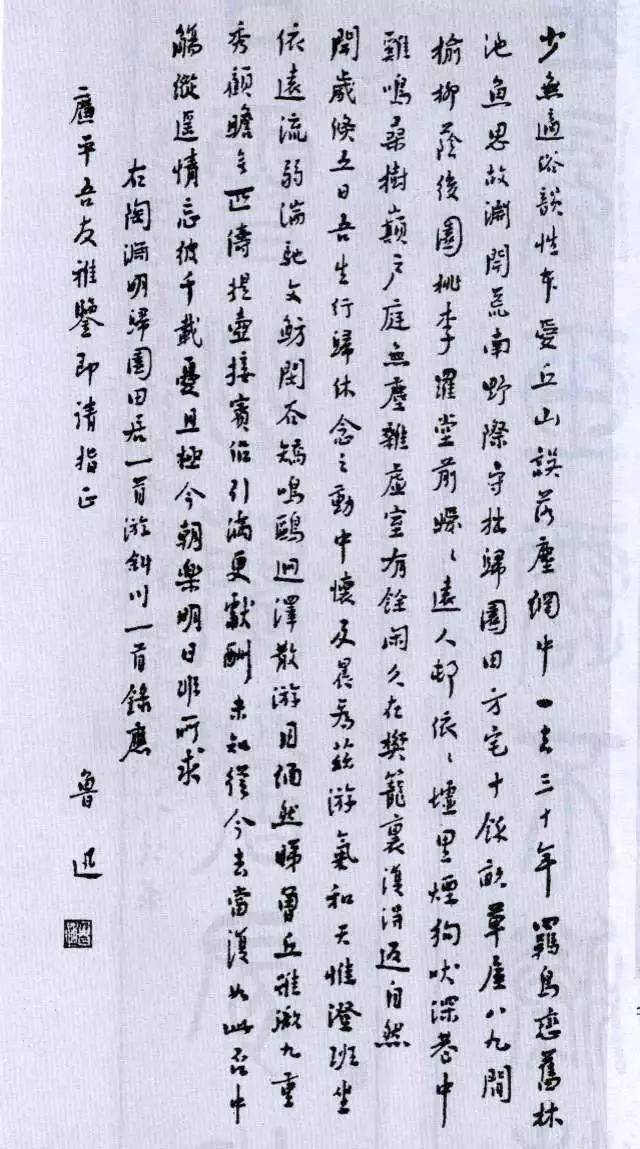 少無適俗韻性本愛丘山誤落塵網中一去三十年羈鳥戀舊林
池魚思故淵開荒南野際守拙歸園田方宅十餘畝草屋八九間
榆柳蔭後園桃李羅堂前曖〻遠人邨依〻墟里煙狗吠深巷中
雞鳴桑樹巔戶庭無塵雜虛室有餘閑久在樊籠裏復得返自然
開歲倏五日吾生行歸休念之動中懷及晨為茲游氣和天惟澄班坐
依遠流弱湍馳文魴閑谷矯鳴鷗迥澤散游目緬然睇曾丘雖微九重
秀顧瞻無匹儔提壺接賓侶引滿更獻酬未知從今去當復如此否中
觴縱遙情忘彼千載憂且極今朝樂明日非所求
右陶淵明歸園田居一首游斜川一首錄應
廉平吾友雅鑒即請指正
魯迅